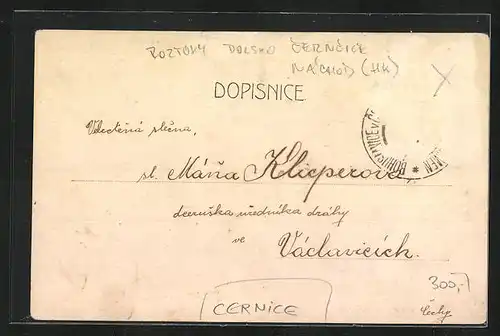 ROZTOKY POLSKO ČERNČICE
NÁCHOD (HK)
DOPISNICE
Velectěná slečna,
sl. Máňa Klicperová
dceruška úředníka dráhy
ve
Václavicích.
300,-
CERNICE
Čechy